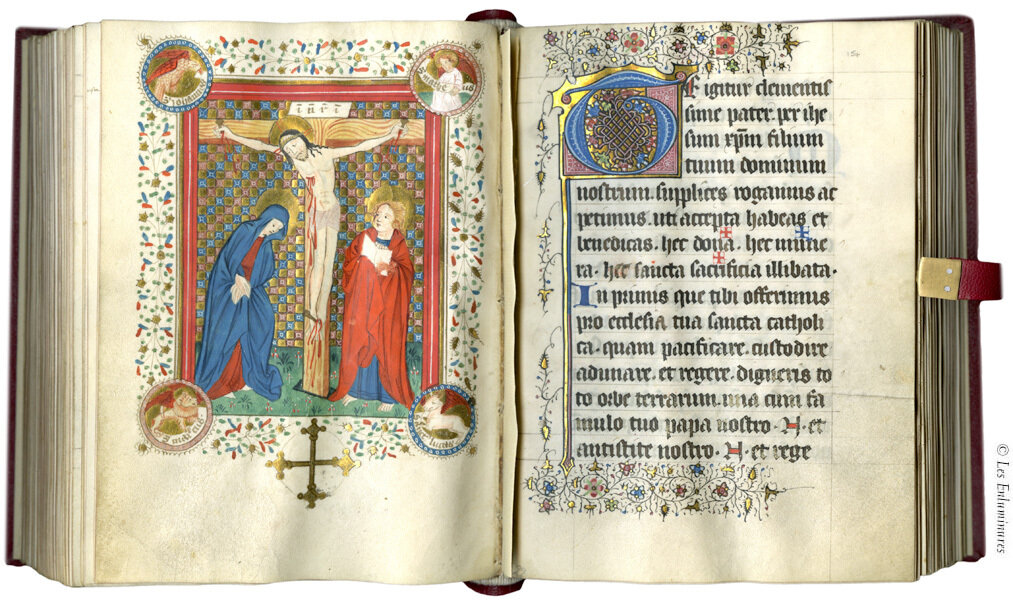 inri
154
Te igitur clementis
sime pater. per ihe
sum xp̄m filium
tuum dominum
nostrum. supplices rogamus ac
petimus. uti accepta habeas et
benedicas. hec dona. hec mune
ra. hec sancta sacrificia illibata.
In primis que tibi offerimus
pro ecclesia tua sancta catholi
ca. quam pacificare. custodire
adunare. et regere. digneris to
to orbe terrarum. una cum fa
mulo tuo papa nostro. N. et
antistite nostro. N. et rege
© Les Enluminures